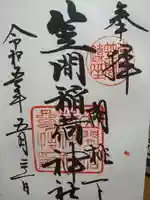 奉拝
胡桃下
笠間稲荷神社
令和五年五月三日